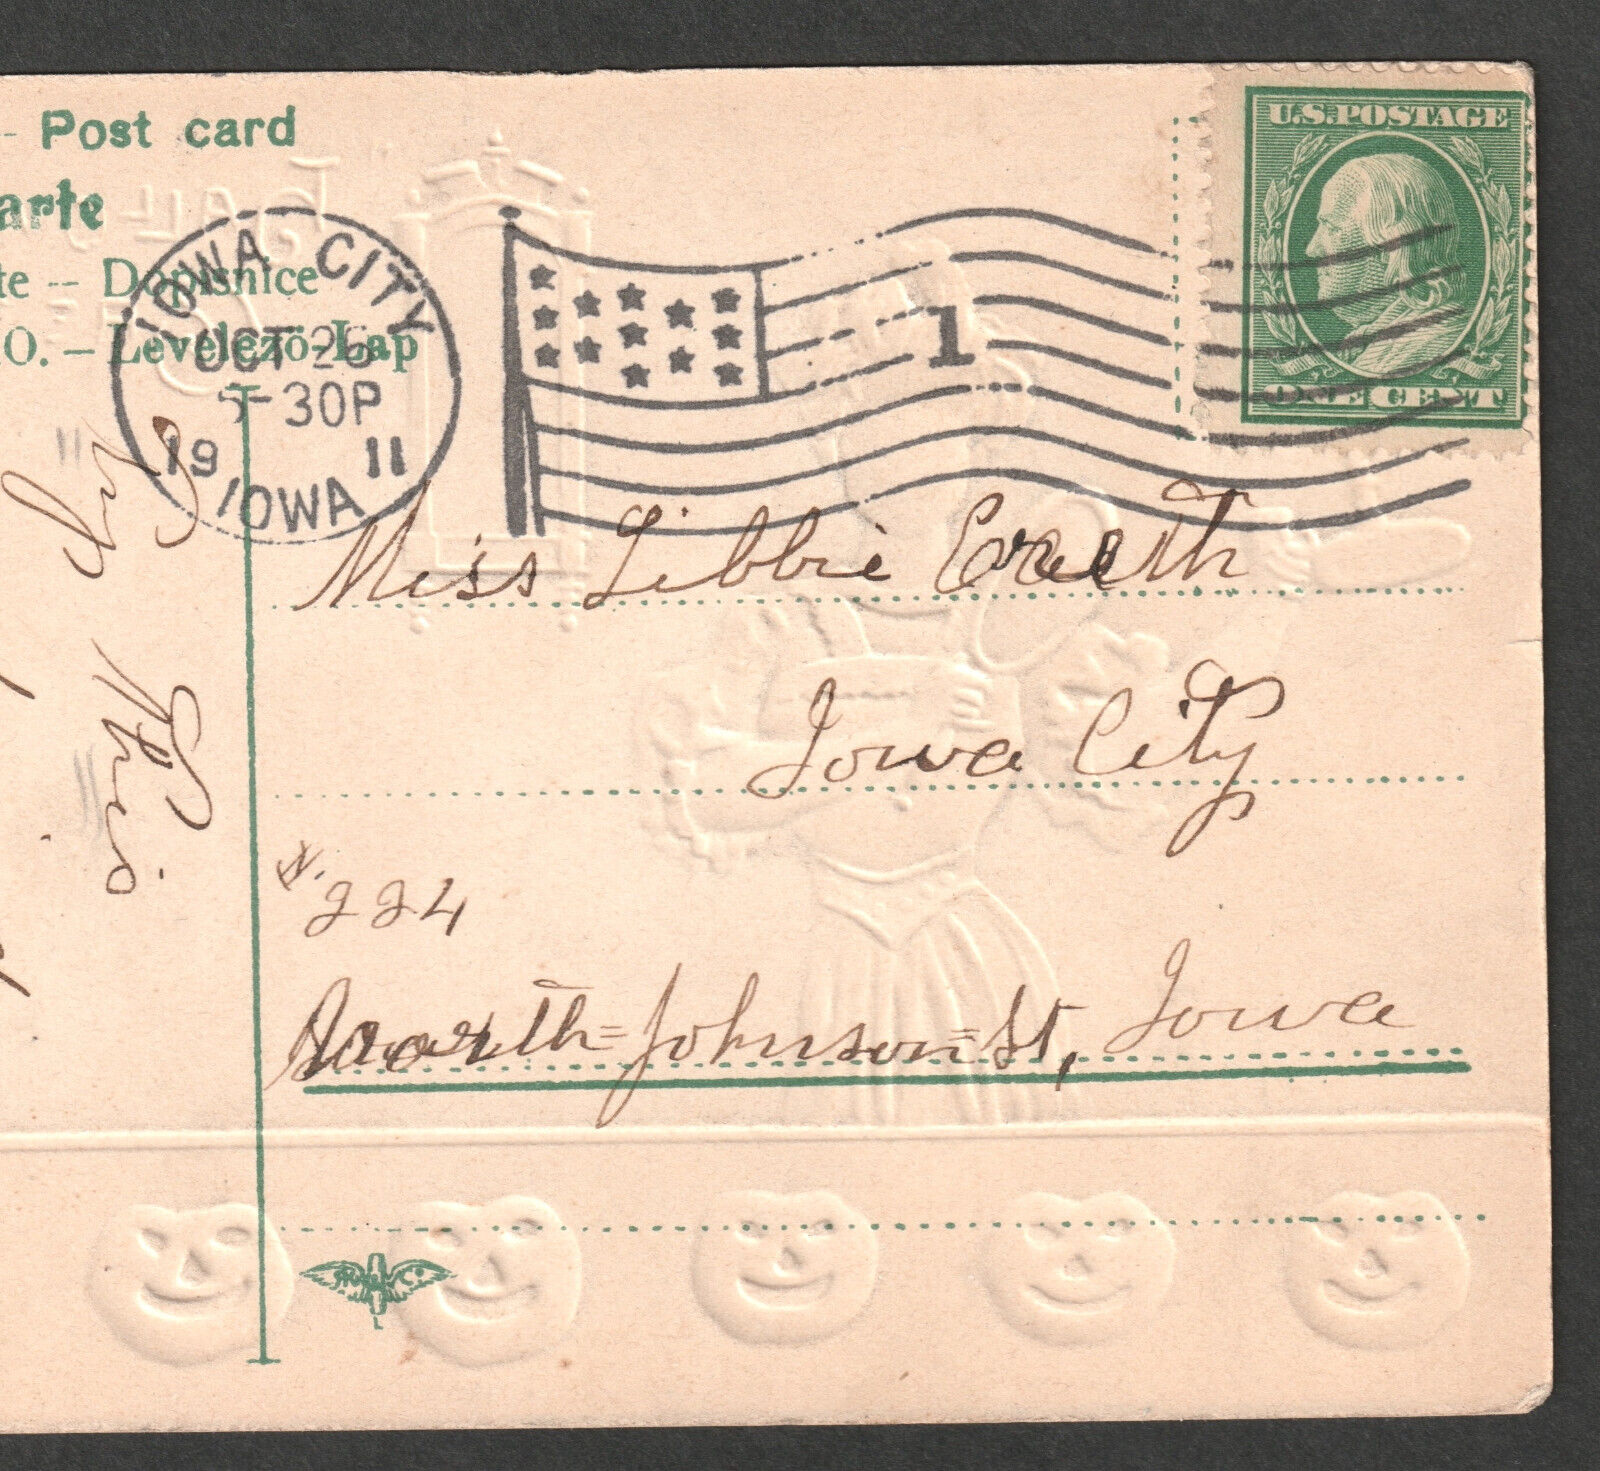 -- Post card
arte
te -- Dopisnice
O. – Levelező-Lap
IOWA CITY
OCT 26
5-30P
19 11
IOWA
1
U.S. POSTAGE
ONE CENT
Miss Libbie
Iowa City
N. 224
North-Johnson-St, Iowa